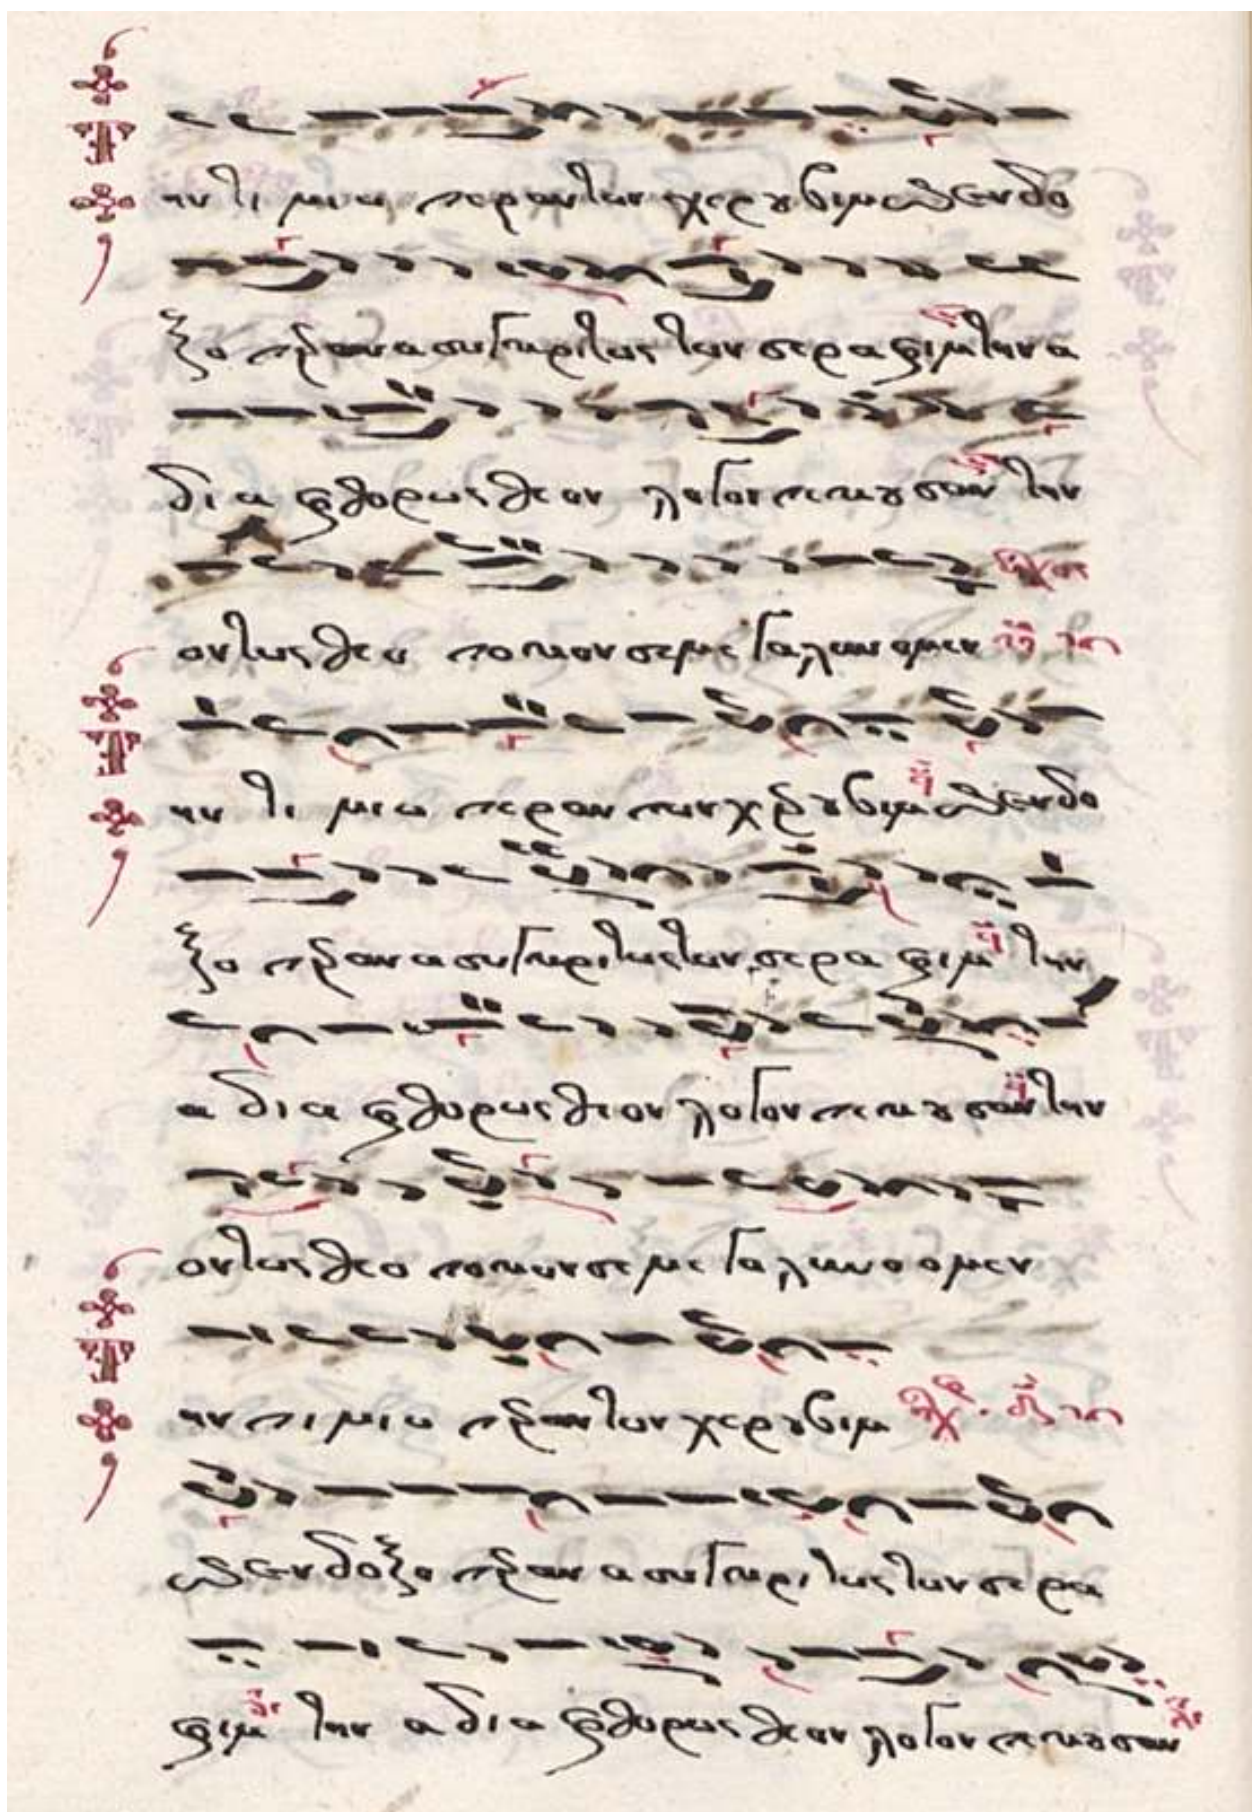 Την τιμιωτεραν των χερουβιμ και ενδο
ξοτεραν ασυγκριτως των σεραφιμ την α
διαφθορως θεον λογον τεκουσαν την
οντως θεοτοκον σε μεγαλυνομεν ηχος
Την τιμιωτεραν των χερουβιμ και ενδο
ξοτεραν ασυγκριτως των σεραφιμ την
αδιαφθορως θεον λογον τεκουσαν την
οντως θεοτοκον σε μεγαλυνοομεν
Την τιμιωτεραν των χερουβιμ
και ενδοξοτεραν ασυγκριτως των σερα
φιμ την αδιαφθορως θεον λογον τεκουσαν